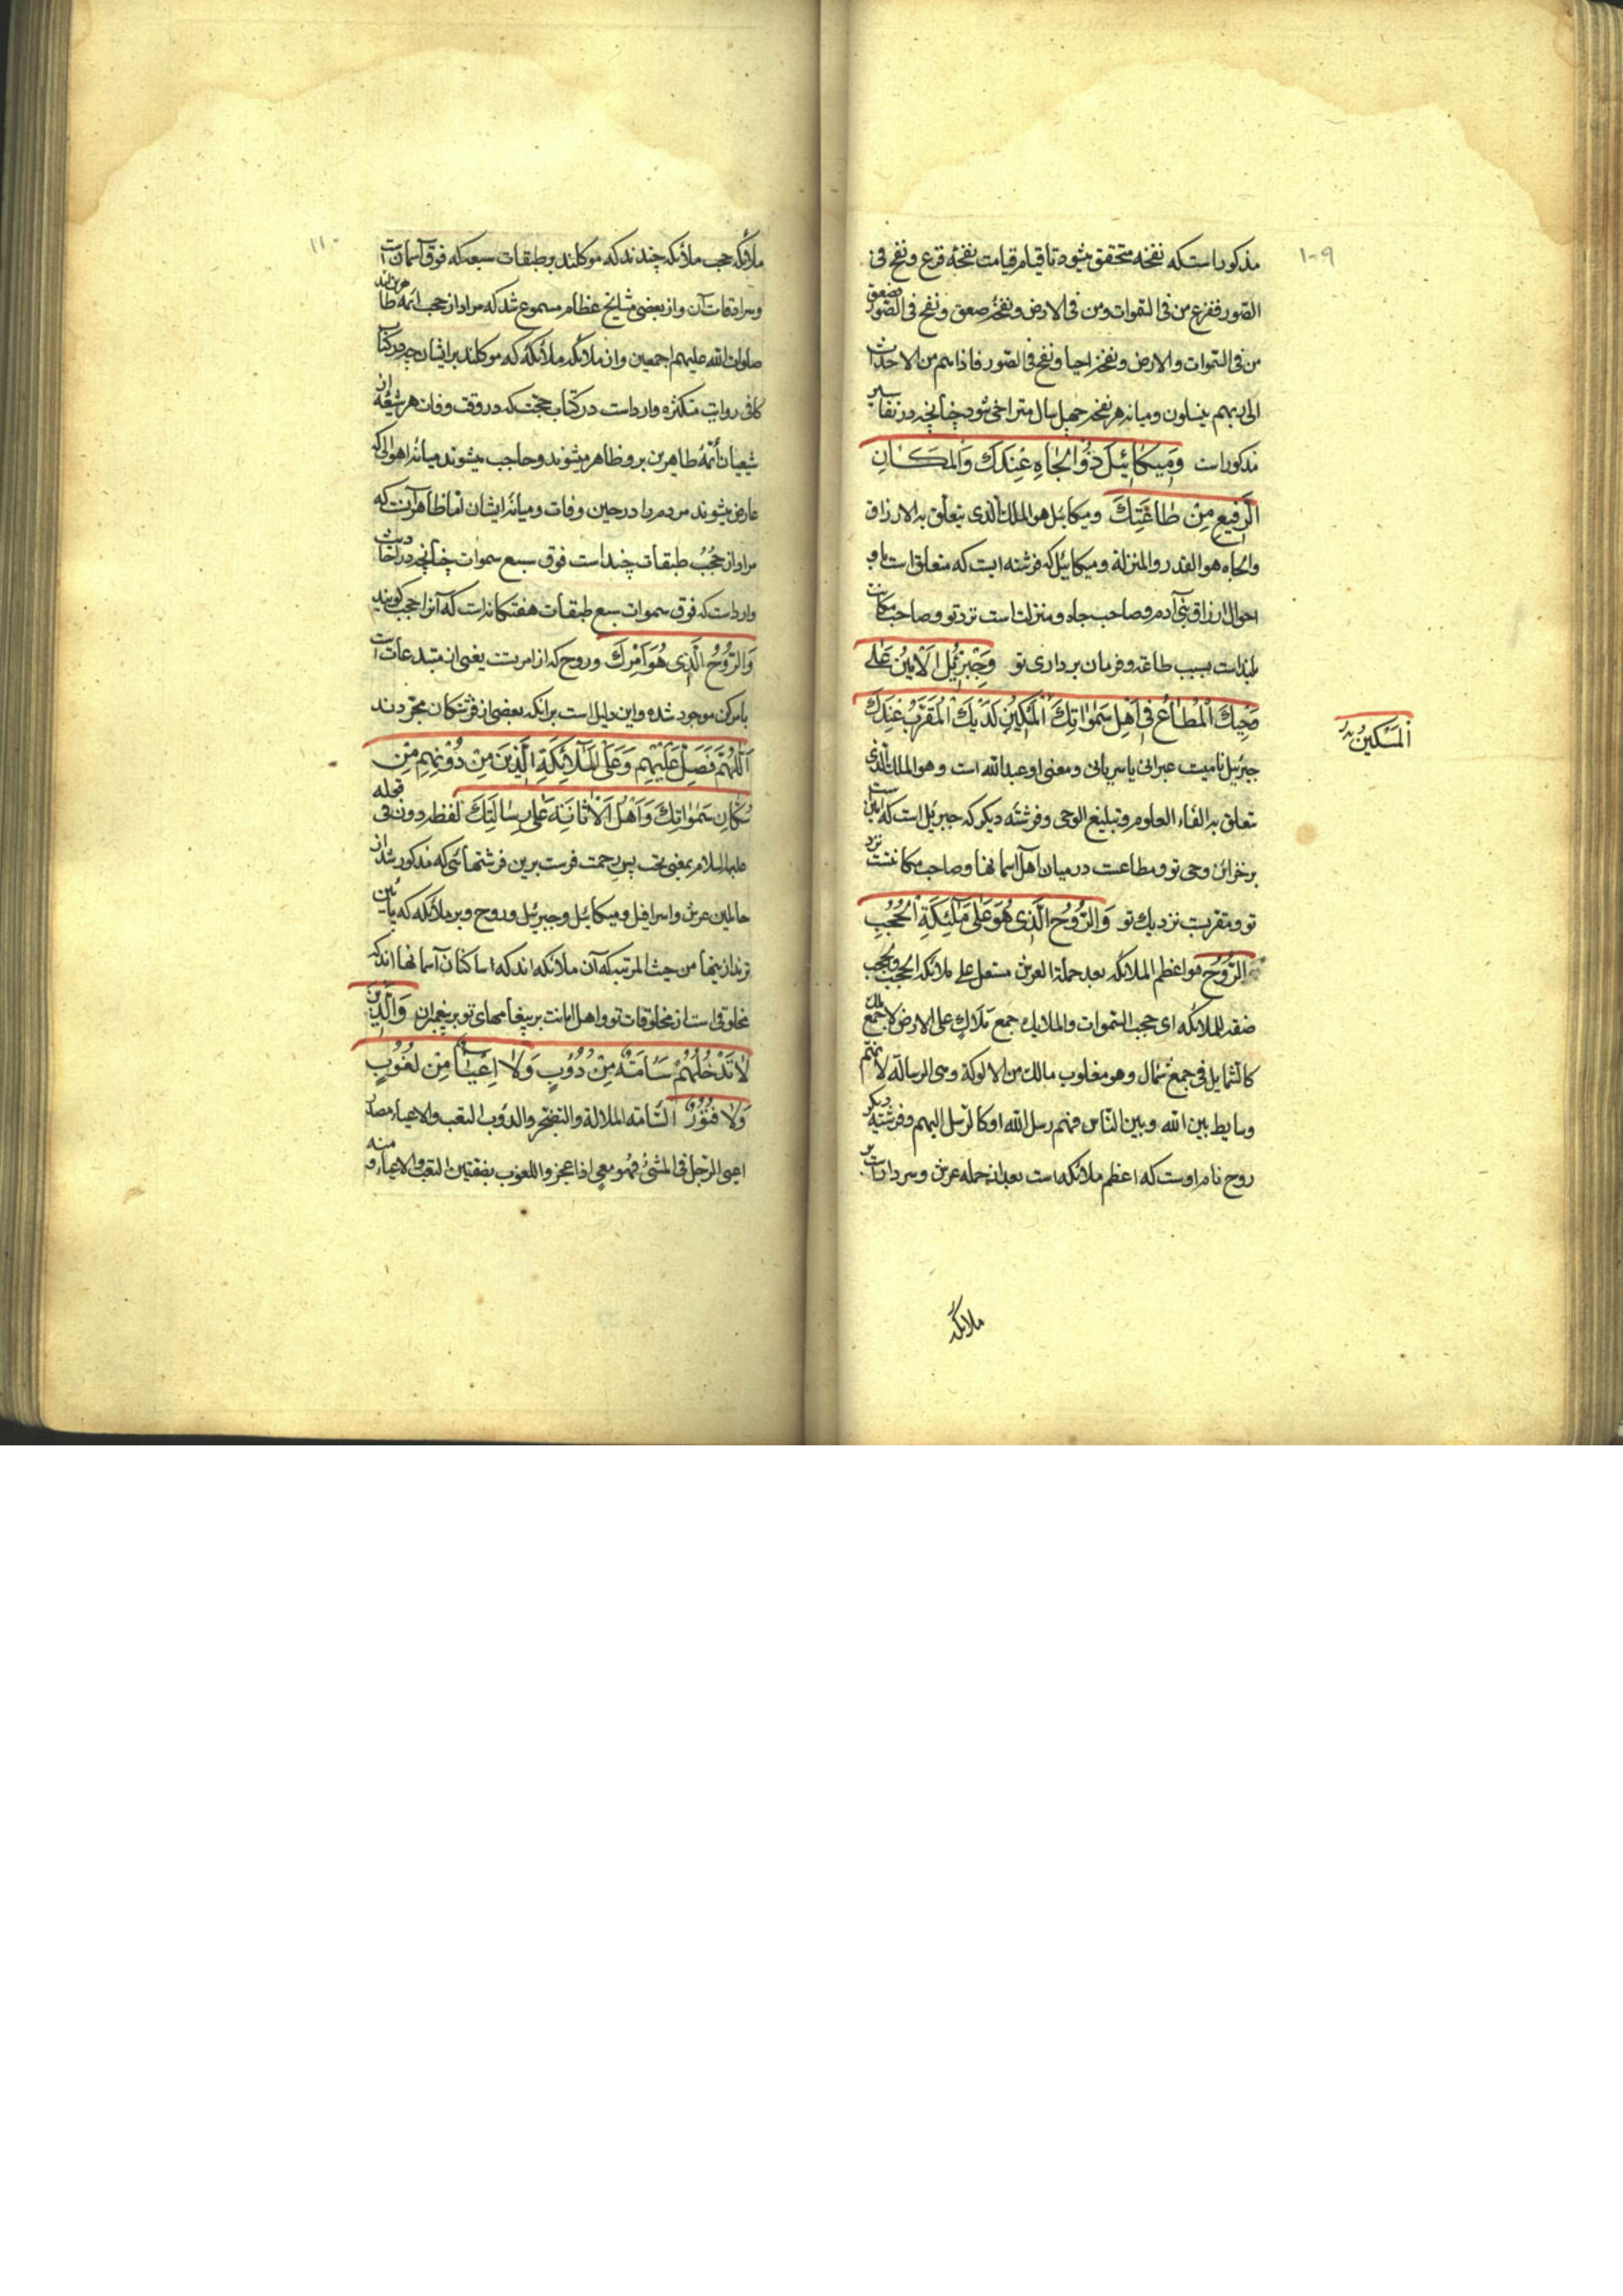 ۱۰۹
مذکور است که نفخه متحقق میشود تا قیام قیامت نفخهٔ فزع و نفخ فی
الصّور ففزع من فی السّموات و من فی الارض و نفخهٔ صعق و نفخ فی الصّور فصعق
من فی السّموات والارض و نفخهٔ احیا و نفخ فی الصّور فاذا هم من الاجداث
الی ربهم ینسلون و میانه هر نفخه چهل سال متراخی شود چنانچه در تفاسیر
مذکور است وَمِیکَائِیلَ ذُو الْجَاهِ عِنْدَكَ وَالْمَکَانِ
الرَّفِیعِ مِنْ طَاعَتِكَ و میکائیل هو الملك الّذی یتعلّق به الارزاق
والجاه هو القدر والمنزلة و میکائیل که فرشته ایست که متعلق است باو
احوال ارزاق بنی آدم و صاحب جاه و منزلت است نزد تو و صاحب مکانت
بلند است بسبب طاعة و فرمان برداری تو وَجِبْرَئِیلُ الْاَمِینُ عَلَی
وَحْیِكَ الْمُطَاعُ فِی اَهْلِ سَمٰوٰاتِكَ الْمَکِینُ لَدَیْكَ الْمُقَرَّبُ عِنْدَكَ
اَلْمَسْکِینُ
جبرئیل نامیست عبرانی یا سریانی و معنی او عبدالله است و هو الملك الّذی
یتعلق به القاء العلوم و تبلیغ الوحی و فرشته دیگر که جبرئیل است که امین است
بر خزائن وحی تو و مطاعست در میان اهل آسمانها و صاحب مکانتست نزد
تو و مقربست نزدیك تو وَالرُّوحُ الَّذِی هُوَ عَلَی مَلٰئِکَةِ الْحُجُبِ
الرُّوحُ هو اعظم الملائکه بعد حملة العرش مستعمل علی ملائکه الحجب و الحجب
صفة للملائکه ای حجب السّموات والملایك جمع ملاك علی الارض لا جمع ملك
کالشمایل فی جمع شمال و هو مقلوب مالك من الالوکة و هی الرسالة لانهم
وسایط بین الله و بین النّاس فهم رسل الله او کالرّسل الیهم و فرشتهٔ دیگر
روح نام اوست که اعظم ملائکه است بعد از حمله عرش و سردار است بر
ملائکه
۱۱۰
ملائکه حجب ملائکه چندند که موکلند بر طبقات سبعه که فوق آسمان است
و سرادقات آن و از بعضی مشایخ عظام مسموع شد که مراد از حجب ائمه طاهرین اند
صلوات الله علیهم اجمعین و از ملائکه ملائکه که موکلند بر ایشان چه در کتاب
کافی روایت متکثره وارد است در کتاب حجت که در وقت وفات هر شیعه از
شیعیان ائمه طاهرین برو ظاهر میشوند و حاجب میشوند میانه اهوالی که
عارض میشوند مردم را در حین وفات و میانه ایشان اما ظاهر آنست که
مراد از حُجُب طبقات چند است فوق سبع سموات چنانچه در احادیث
وارد است که فوق سموات سبع طبقات هفتگانه است که آنرا حجب گویند
وَالرُّوحُ الَّذِی هُوَ اَمْرِكَ و روح که از امر تست یعنی از مبتدعات است
بامر کن موجود شده و این دلیل است برانکه بعضی از فرشتگان مجرّدند
اَللّٰهُمَّ فَصَلِّ عَلَیْهِمْ وَعَلَی الْمَلٰائِکَةِ الَّذِینَ مِنْ دُونِهِمْ مِنْ
سُکَّانِ سَمٰوٰاتِكَ وَاَهْلِ الْاَمٰانَةِ عَلٰی رِسَالَتِكَ لفظ دون فی قوله
علیه السلام بمعنی تحت پس رحمت فرست برین فرشتهائی که مذکور شد از
حاملین عرش و اسرافیل و میکائیل و جبرئیل و روح و بر ملائکه که پایین
ترند ازینها من حیث المرتبه که آن ملائکه اند که ساکنان آسمانها اند که
مخلوقی است از مخلوقات تو و اهل امانت بر پیغامهای تو بر پیغمبران وَالَّذِینَ
لَا تَدْخُلُهُمْ سَأْمَةٌ مِنْ دُؤُبٍ وَلَا اِعْیَاءٌ مِنْ لُغُوبٍ
وَلَا فُتُورٌ السّامة الملالة والتضجر والدؤب التعب والاعیاء مصدر
اعیی الرّجل فی المشی فهو معی اذا عجز واللغوب بضمتین التعب والاعیاء و منه